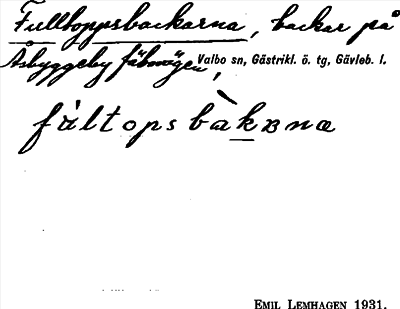 Fulltoppsbackarna, backar på
Åsbyggeby fäbovägen, Valbo sn, Gästrikl. ö. tg, Gävleb. l.
fúltopsbàkana
EMIL LEMHAGEN 1931.